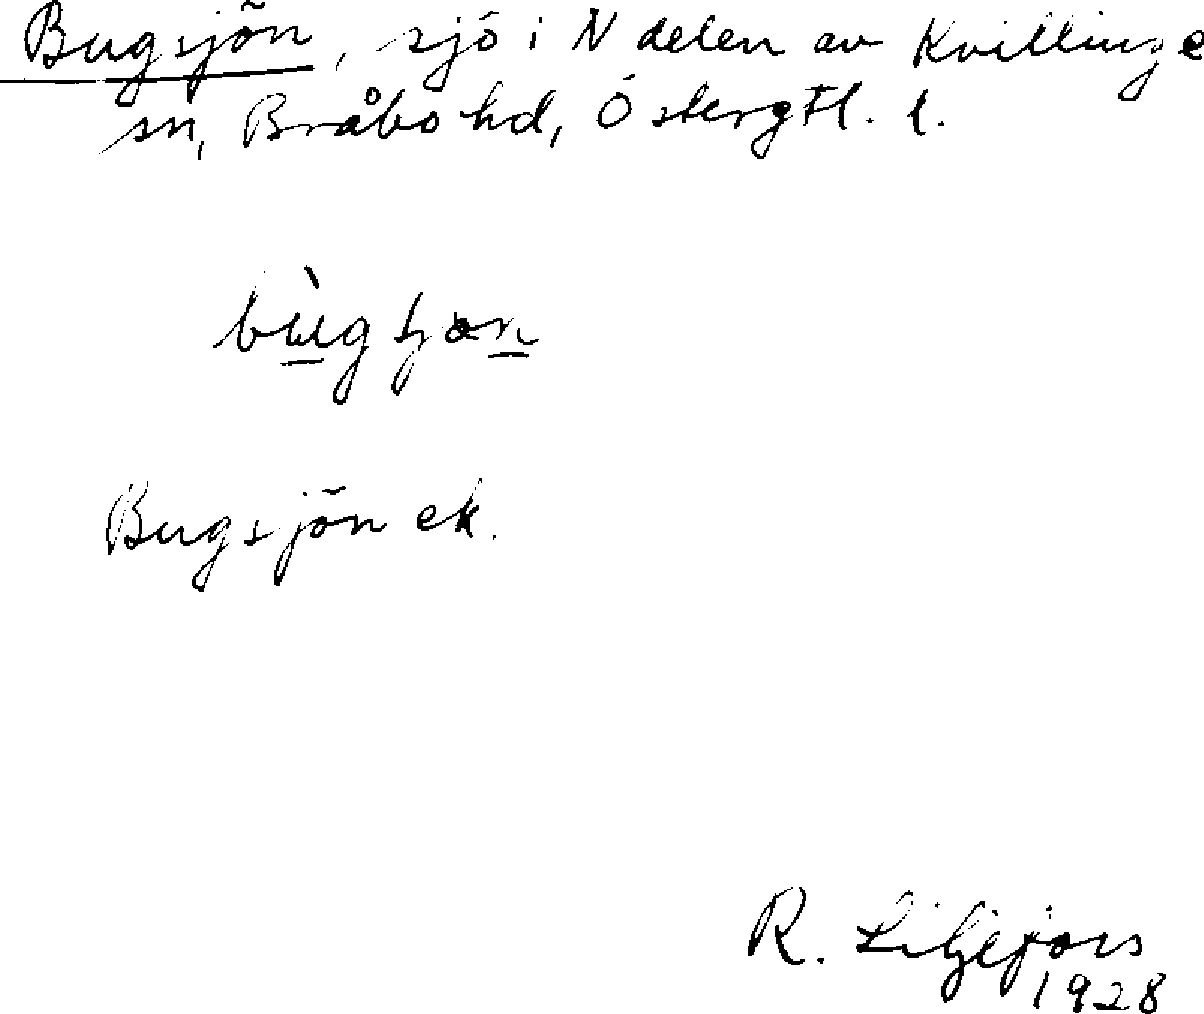 Bugsjön, sjö i N delen av Kvillinge
sn, Bråbo hd, Östergtl. l.
Bugsjön ek.
R. Liljefors
1928